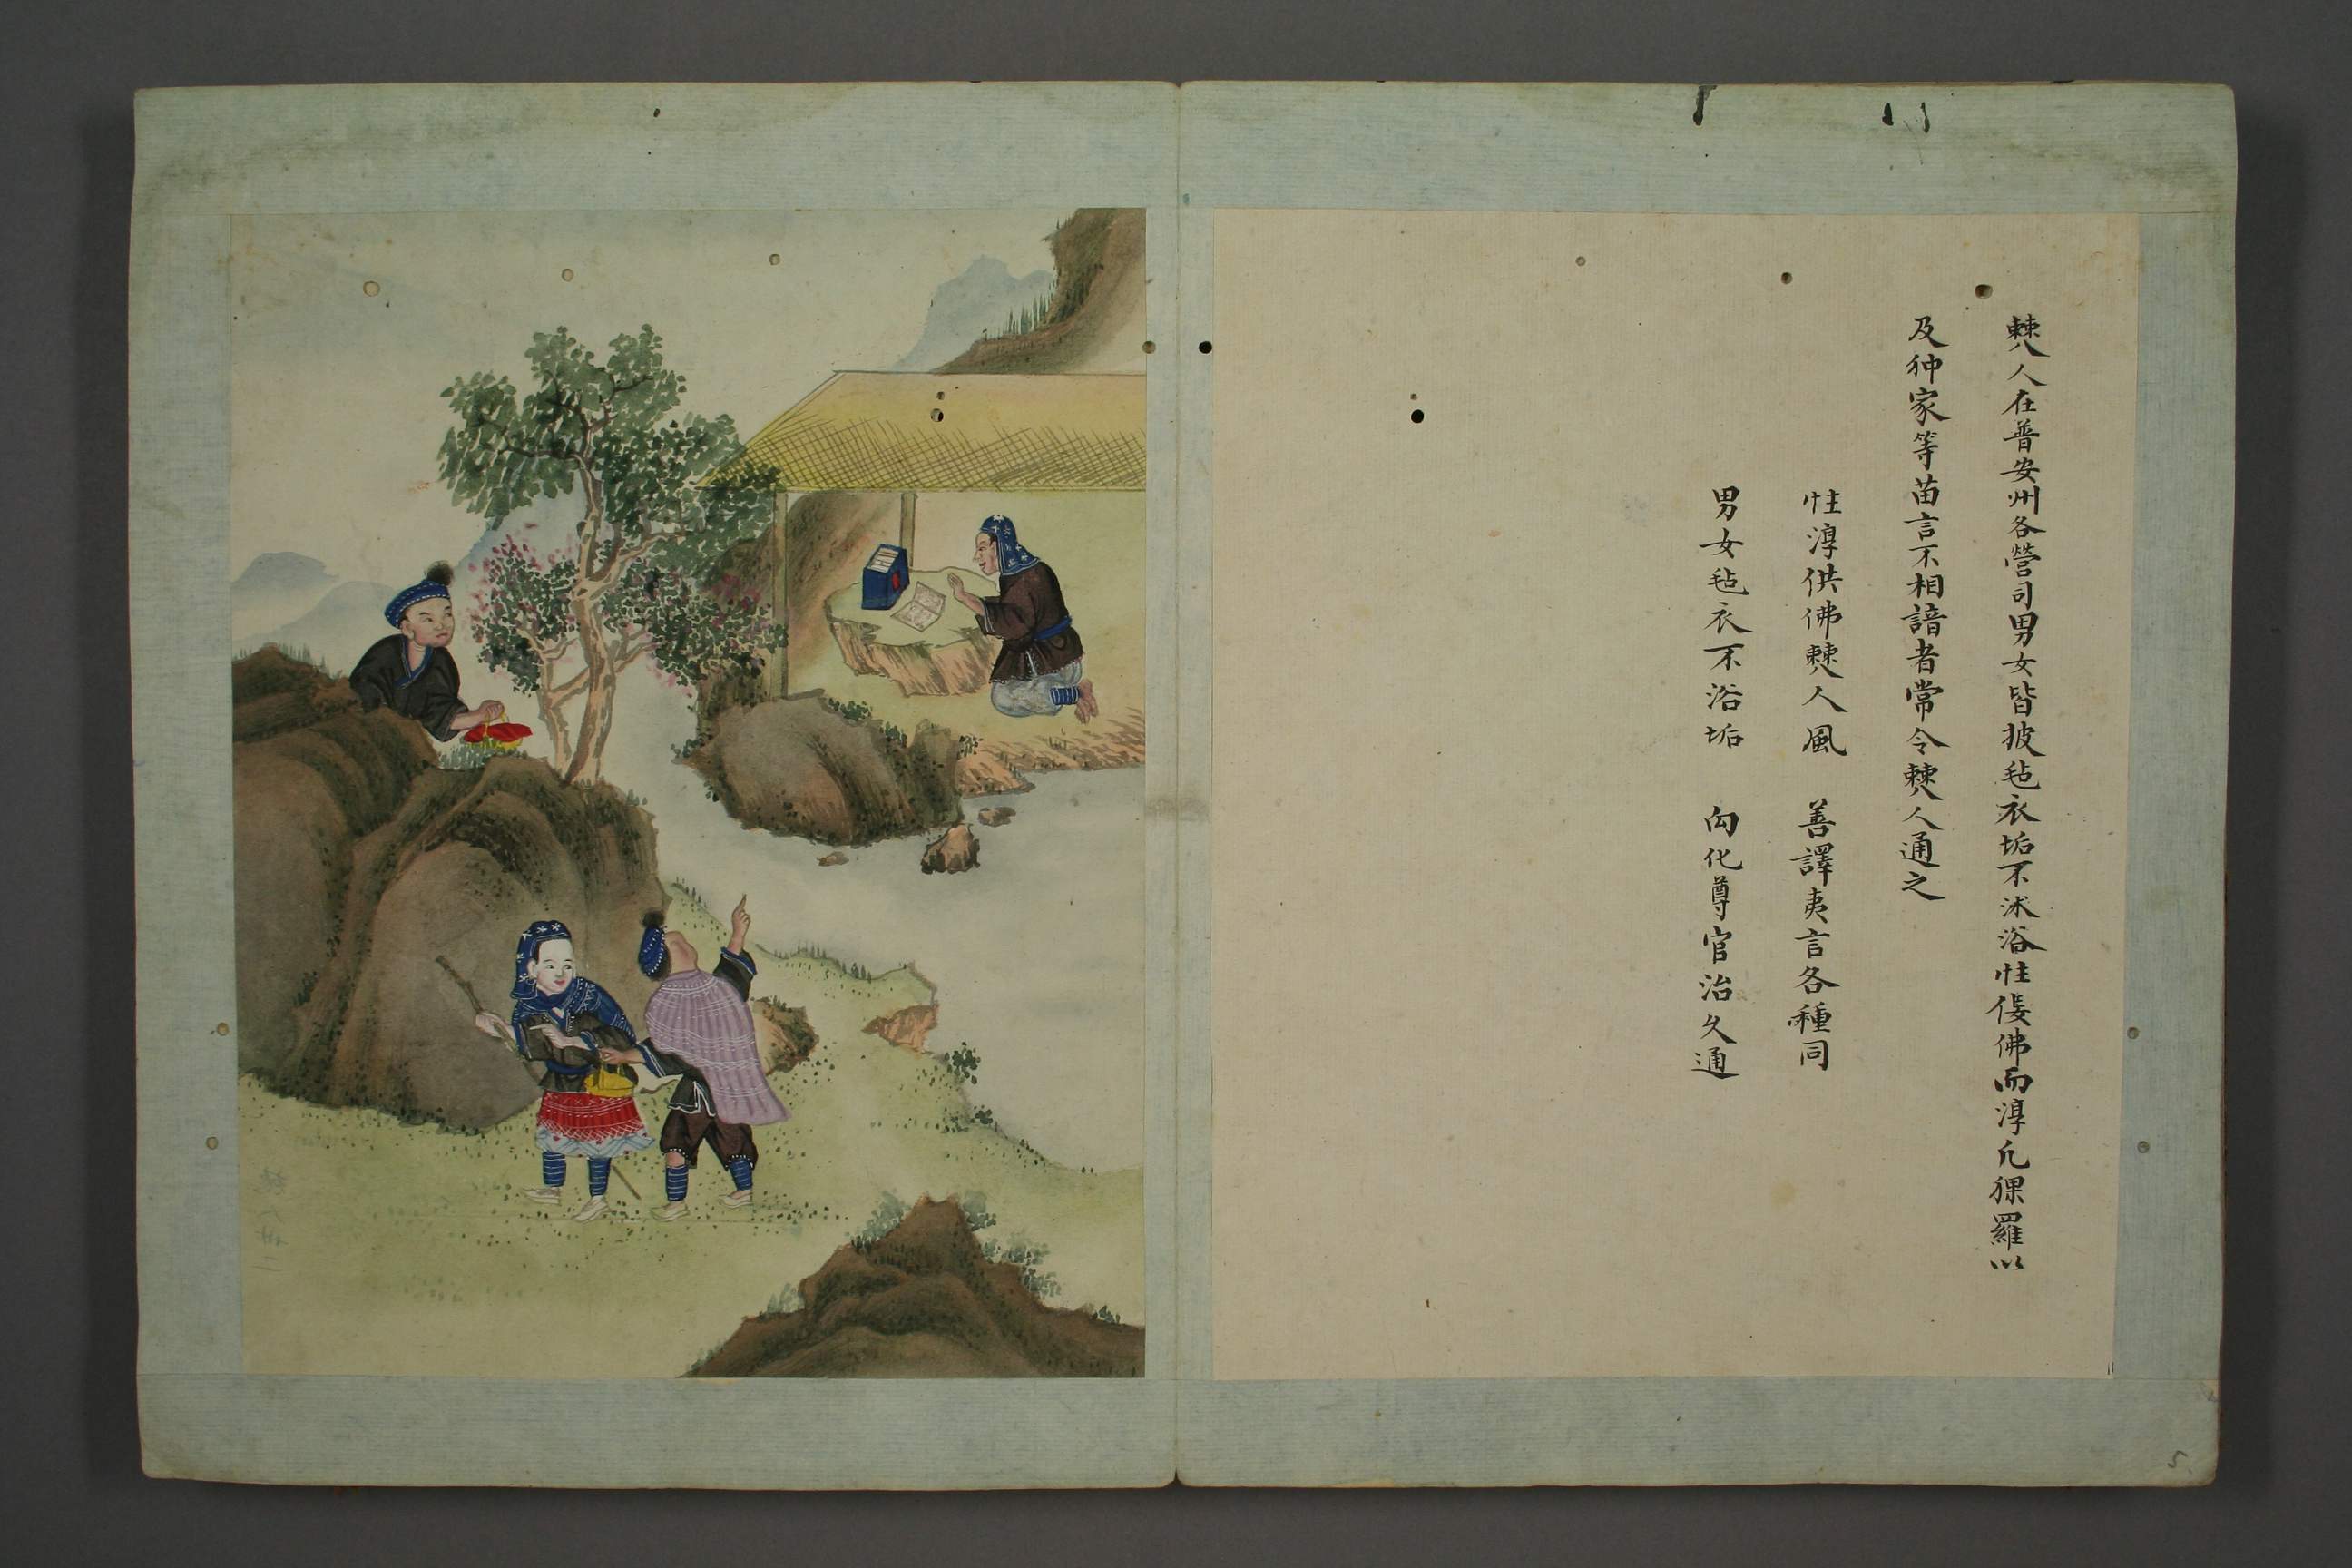 僰人在普安州各營司男女皆披毡衣垢不沐浴性佞佛而淳凡猓羅以
及狆家等苗言不相諳者常令僰人通之
性淳供佛僰人風　善譯夷言各種同
男女毡衣不浴垢　向化尊官治久通
5